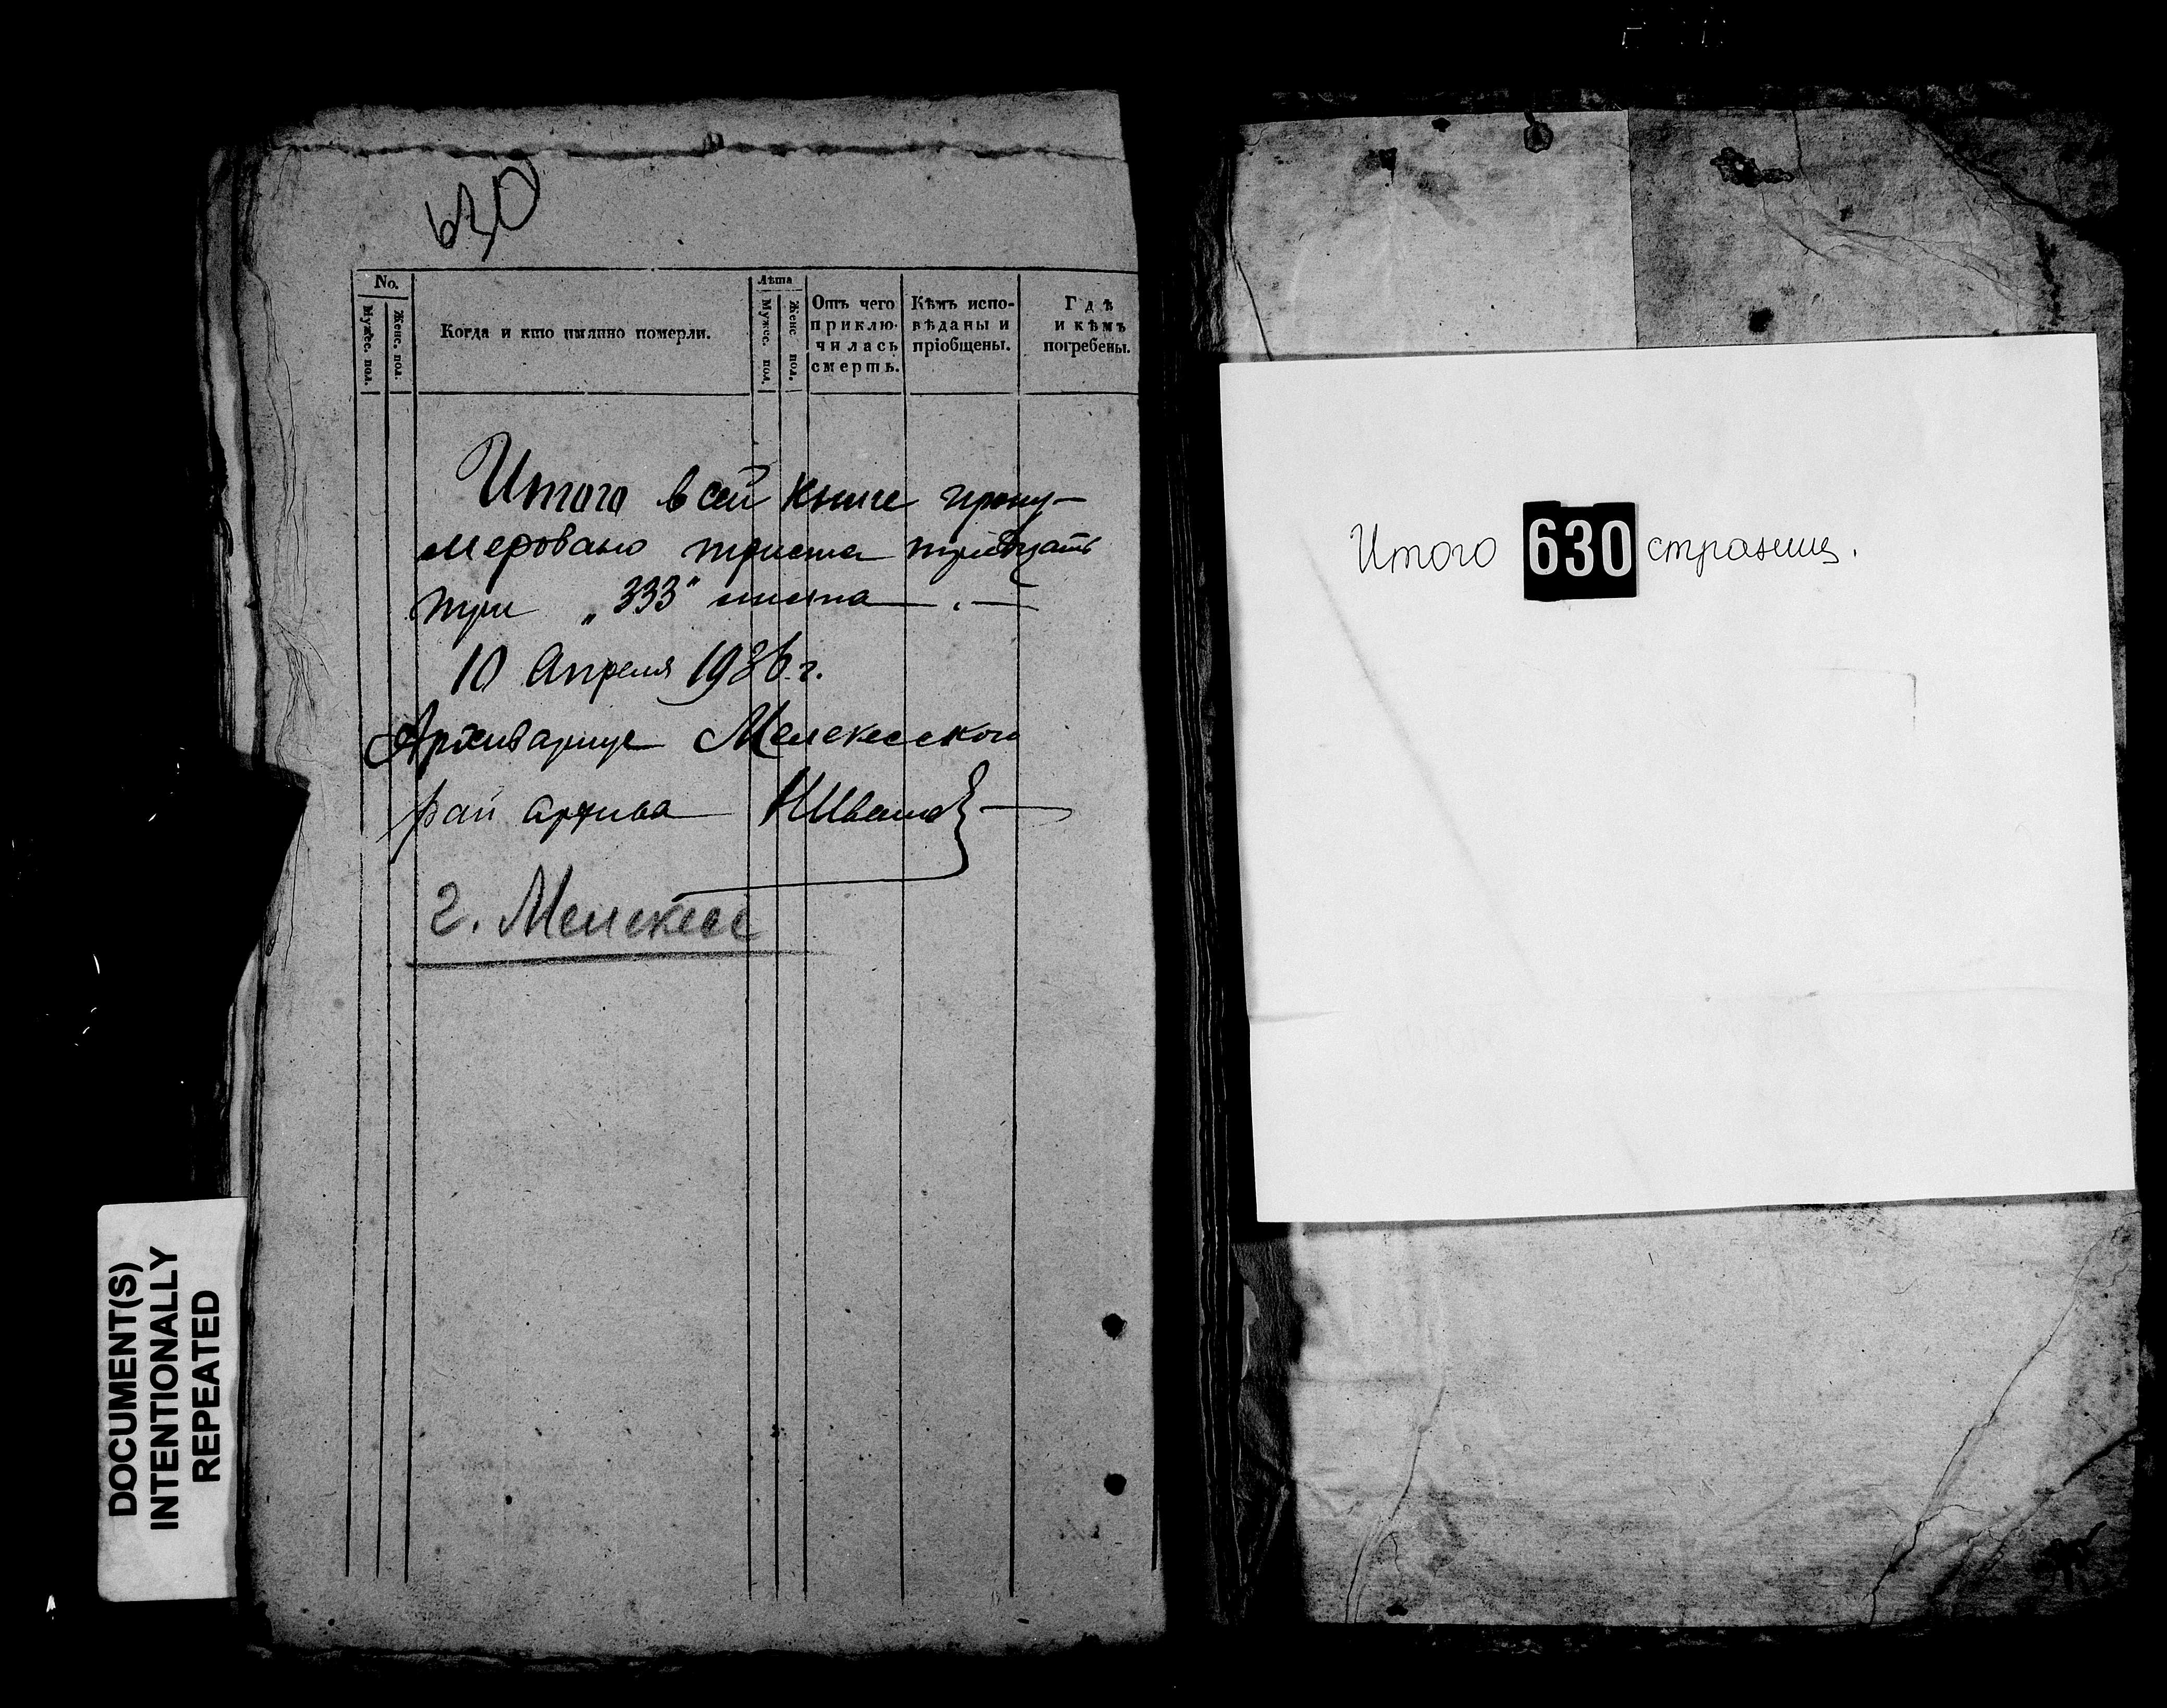 630
No.
Мужес. пол.
Женс. пол.
Когда и кто имянно померли.
Лѣта
Мужес. пол.
Женс. пол.
Отъ чего
приклю-
чилась
смерть.
Кѣмъ испо-
вѣданы и
пріобщены.
Гдѣ
и кѣмъ
погребены.
Итого в сей книге прону-
меровано триста тридцать
три „333" листа
10 Апреля 1936 г.
Архивариус Мелекесского
рай архива НИванов
г. Мелекесс
DOCUMENT(S)
INTENTIONALLY
REPEATED
Итого 630 страниц.